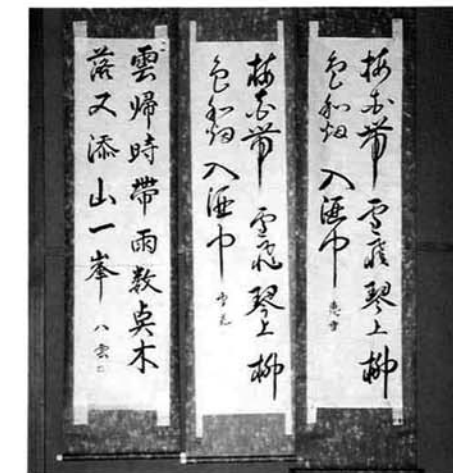 梅花帯雪飛琴上柳
色和烟入酒中
梅花帯雪飛琴上柳
色和烟入酒中
雲帰時帶雨数点木
落又添山一峯 八雲